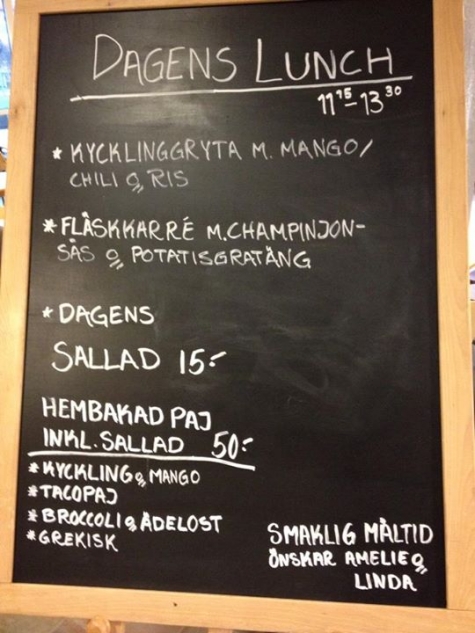 DAGENS LUNCH
11 15 - 13 30
* KYCKLINGGRYTA M. MANGO/
CHILI & RIS
* FLÄSKKARRÉ M. CHAMPINJON-
SÅS & POTATISGRATÄNG
* DAGENS
SALLAD 15:-
HEMBAKAD PAJ
INKL. SALLAD 50:-
* KYCKLING & MANGO
* TACOPAJ
* BROCCOLI & ÄDELOST
* GREKISK
SMAKLIG MÅLTID
ÖNSKAR AMELIE &
LINDA